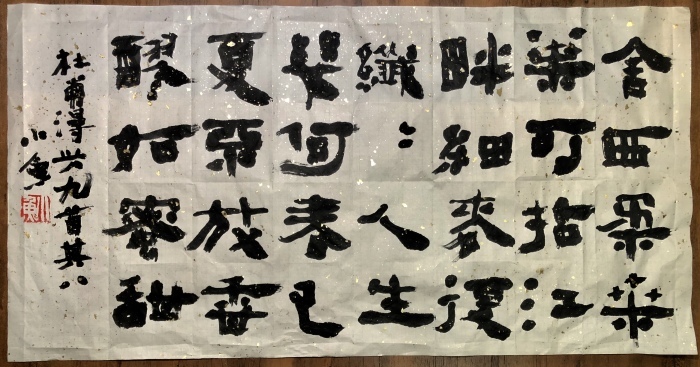 舍西柔桑
葉可拈江
畔細麥復
纖〻人生
幾何春已
夏不放香
醪如蜜甜
杜甫漫兴九首其八
小魚